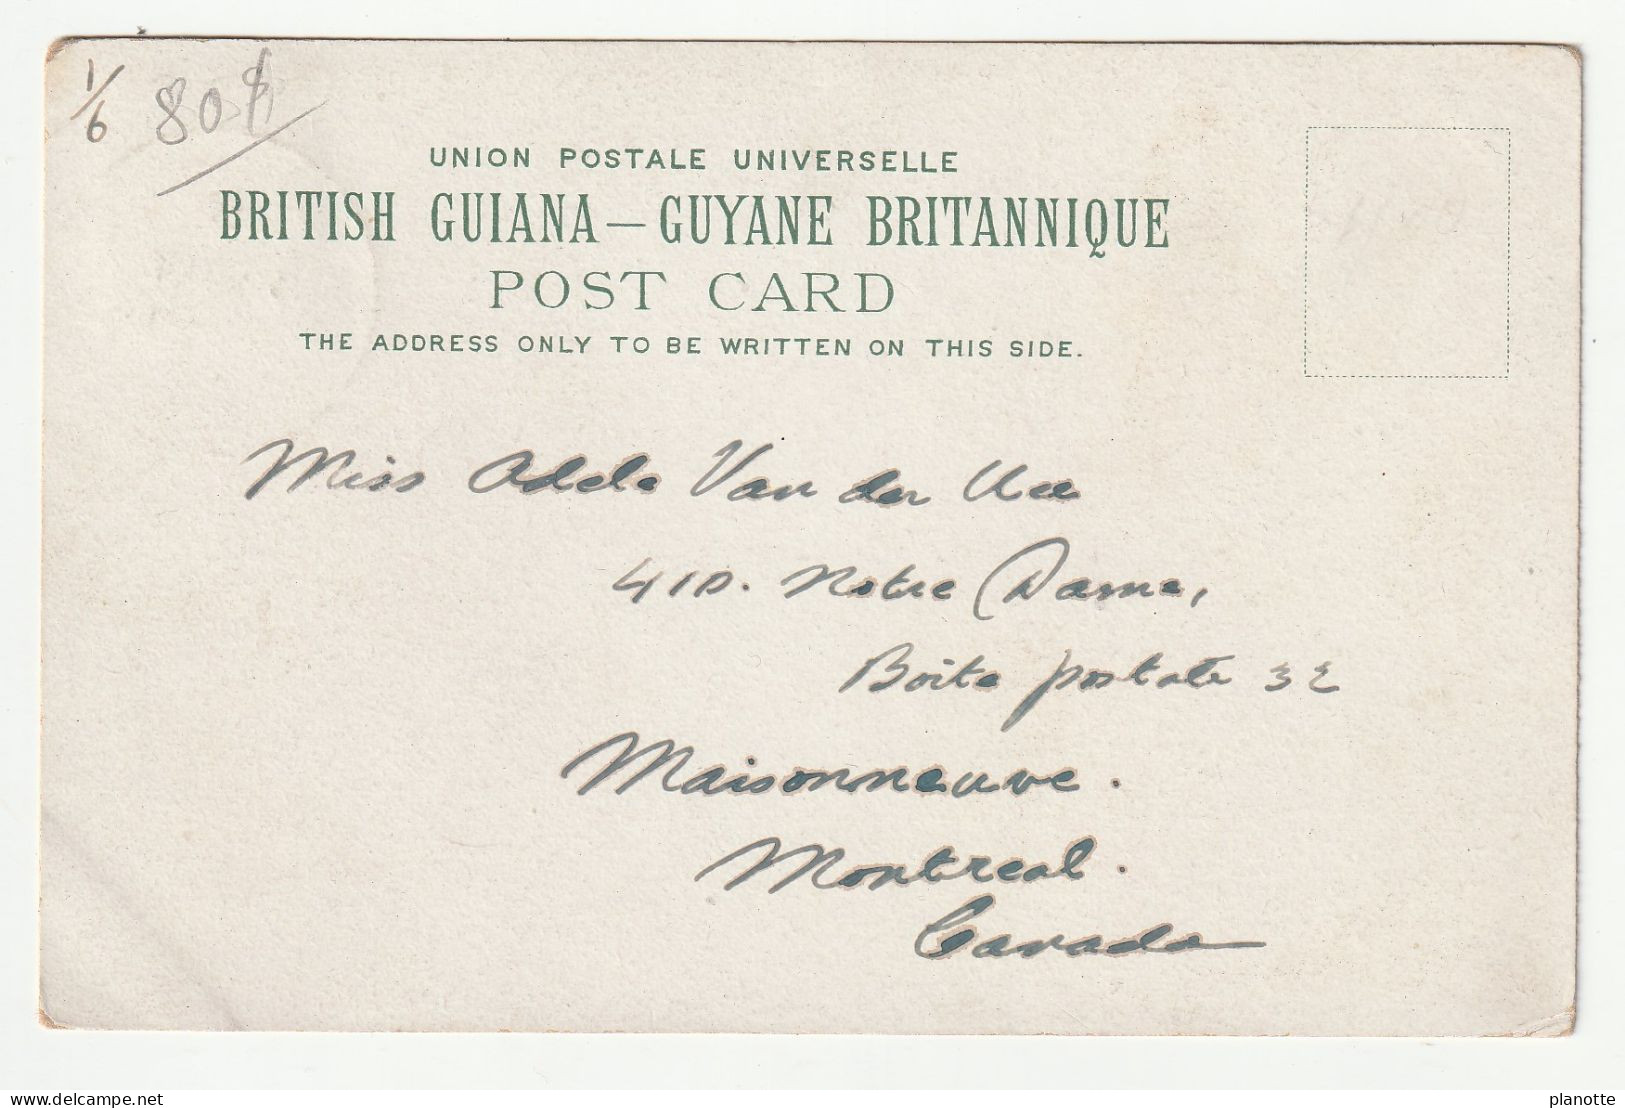 1/6
80
UNION POSTALE UNIVERSELLE
BRITISH GUIANA — GUYANE BRITANNIQUE
POST CARD
THE ADDRESS ONLY TO BE WRITTEN ON THIS SIDE.
Miss Adele Van der
410. Notre Dame,
Boite postale 32
Maisonneuve.
Montreal.
Canada
delcampe.net
planotte